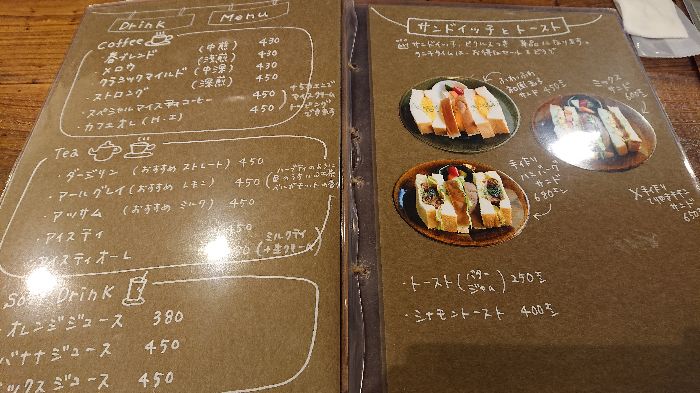 Drink
Menu
Coffee
・春ブレンド (中煎) 430
・メロウ (浅煎) 430
・クラシックマイルド (中深) 430
・ストロング (深煎) 450
・スペシャルアイスティコーヒー 450
・カフェオレ (H・I) 450
Tea
・ダージリン (おすすめ ストレート) 450
・アールグレイ (おすすめ レモン) 450
・アッサム (おすすめ ミルク) 450
・アイスティ 450
アイスティオーレ
ミルクティ
(+生クリーム)
Drink
オレンジジュース 380
バナナジュース 450
ックスジュース 450
サンドイッチとトースト
サンドイッチ、ピクルスつき 単品になります。
ふわふわ
サンド 450円
ミックス
サンド
手作り
ハンバーグ
サンド
680円
手作り
・トースト (バター ジャム) 250円
・シナモントースト 400円